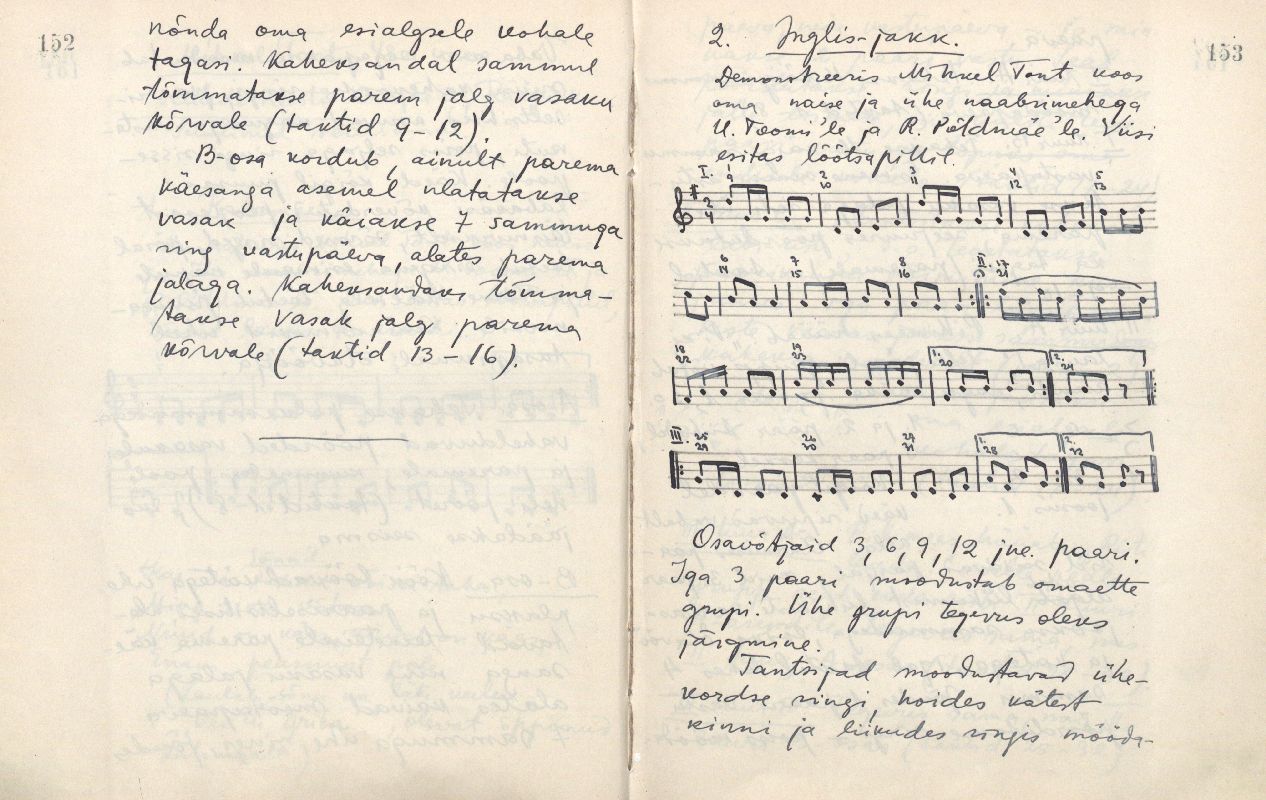 152
nõnda oma esialgsele kohale
tagasi. Kaheksandal sammul
tõmmatakse parem jalg vasaku
kõrvale (taktid 9-12).
B-osa kordub, ainult parema
käesanga asemel ulatatakse
vasak ja käiakse 7 sammuga
ring vastupäeva, alates parema
jalaga. Kaheksandaks tõmma-
takse vasak jalg parema
kõrvale (taktid 13-16).
153
2. Inglis-jakk.
Demonstreeris Mihkel Tont koos
oma naise ja ühe naabrimehega
U. Toomi'le ja R. Põldmäe'le. Viisi
esitas lõõtspillil
I. 1 9 2 10 3 11 4 12 5 13
2 4
6 14 7 15 8 16 II. 17 21
18 22 19 23 1. 20 2. 24
III. 25 29 26 30 27 31 1. 28 2. 32
Osavõtjaid 3, 6, 9, 12 jne. paari.
Iga 3 paari moodustab omaette
grupi. Ühe grupi tegevus oleks
järgmine.
Tantsijad moodustavad ühe-
kordse ringi, hoides kätest
kinni ja liikudes ringis mööda-